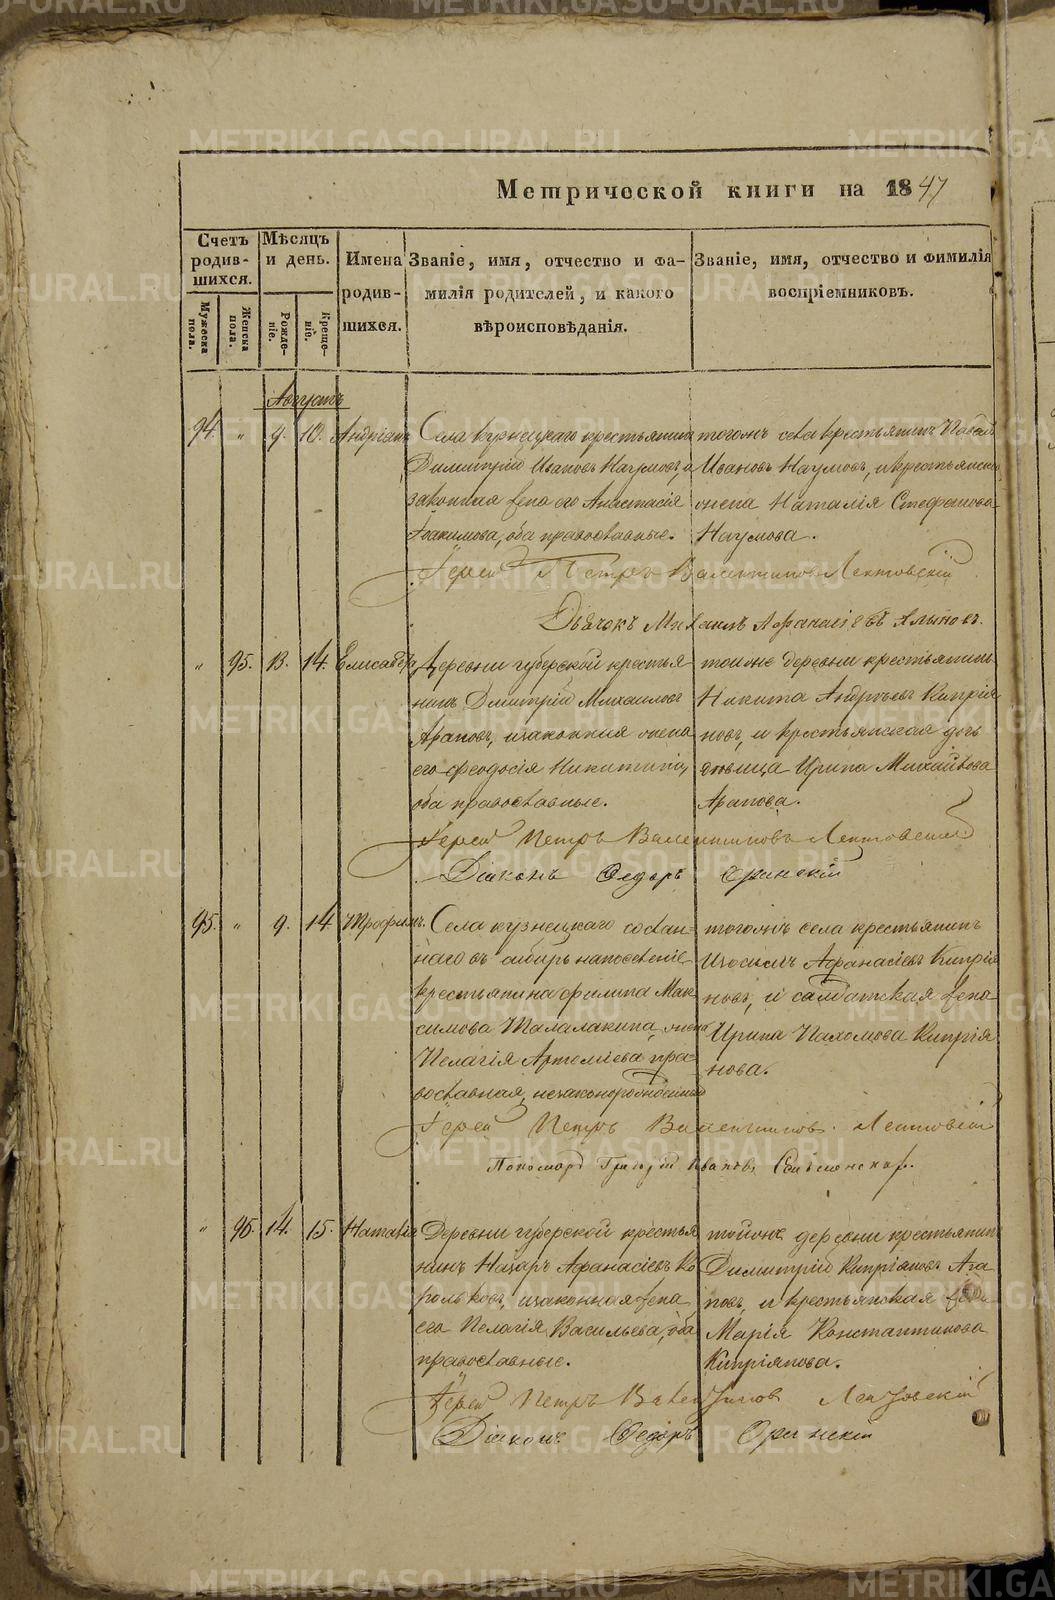 Метрической книги на 1847
Счетъ родив-шихся.
Мѣсяцъ и день.
Имена родив-шихся.
Званіе, имя, отчество и фа-милія родителей, и какого вѣроисповѣданія.
Званіе, имя, отчество и фимилія воспріемниковъ.
Мужеска пола.
Женска пола.
Рожде-ніе.
Креще-ній.
Августъ
94. " 9. 10. Андріанъ
Села кузнецкаго крестьянинъ
Димитрій Ивановъ Наумовъ, и
законная жена его Анастасія
Іоакимова, оба православные.
тогожъ села крестьянинъ Павелъ
Ивановъ Наумовъ, и крестьянска
жена Наталія Стефанова
Наумова.
Іерей Петръ Валентиновъ Лектовскій
Дьячокъ Михаилъ Афанасіевъ
" 95. 13. 14. Елисавета
Деревни губерской крестья-
нинъ Димитрій Михаиловъ
Араповъ, и законная жена
его Феодосія Никитина,
оба православные.
тойже деревни крестьянинъ
Никита Андреевъ Кипрія
новъ, и крестьянская дочь
дѣвица Ирина Михайлова
Арапова.
Іерей Петръ Валентиновъ Лектовскій
Діаконъ Федоръ
95. " 9. 14. Трофимъ.
Села кузнецкаго сослан-
наго въ сибирь на поселеніе
крестьянина Филипа Мак-
симова Талалакина жена
Пелагія Артеміева пра-
вославная, незаконорожденный
тогожъ села крестьянинъ
Изосимъ Афанасіевъ Кипрія
новъ, и салдатская жена
Ирина Пахомова Кипрія
нова.
Іерей Петръ Валентиновъ Лектовскій
Пономарь Григорій Ивановъ
" 96. 14. 15. Наталія
Деревни губерской крестья
нинъ Назаръ Афанасіевъ Ко
рольковъ, и законная жена
его Пелагія Васильева, оба
православные.
тойже деревни крестьянинъ
Димитрій Кипріановъ Ага
повъ, и крестьянская жена
Марія Константинова
Кипріянова.
Іерей Петръ Валентиновъ Лектовскій
Діаконъ Федоръ
METRIKI.GASO-URAL.RU